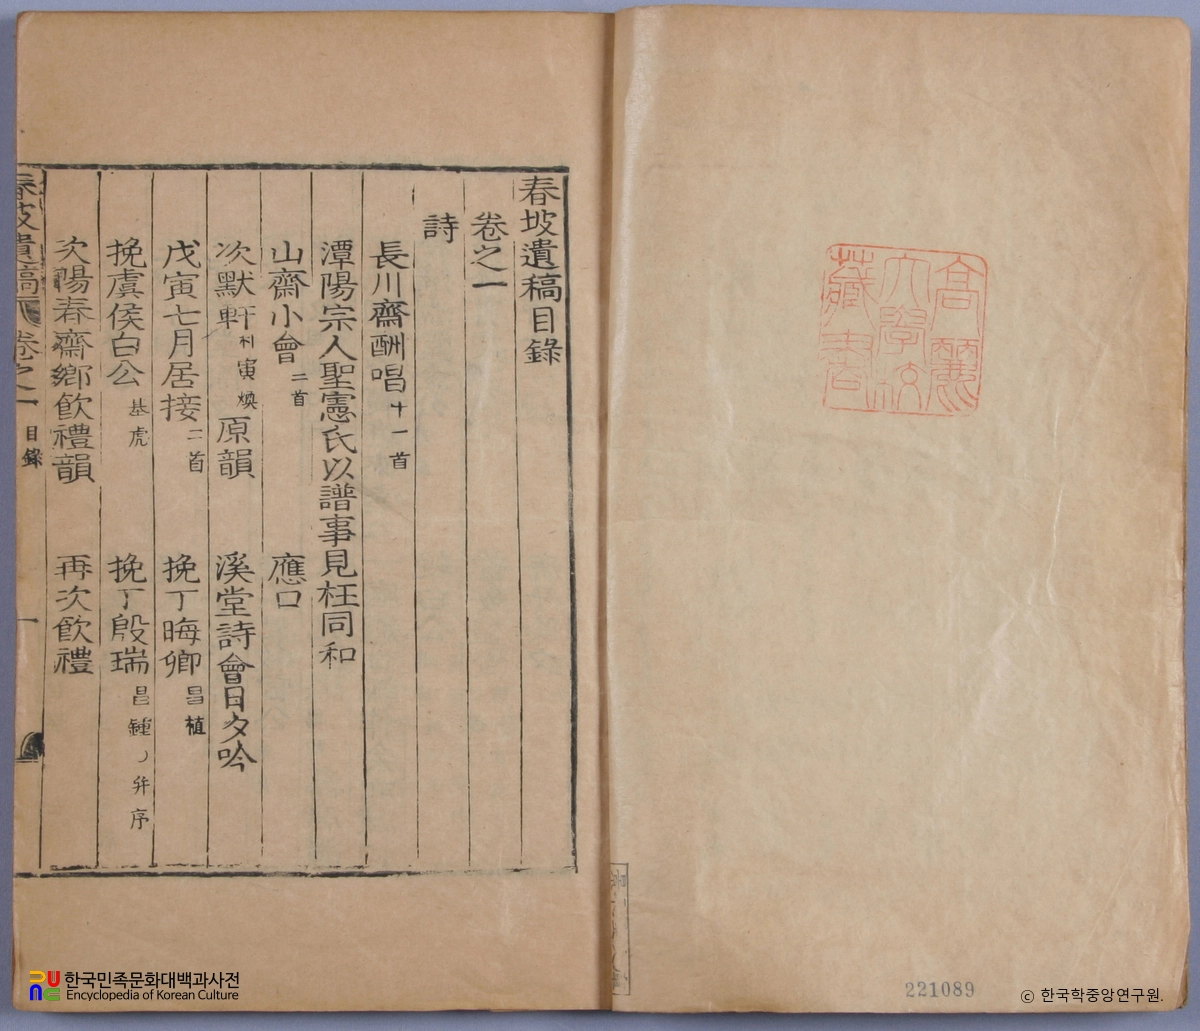 高麗
大學校
藏書
春坡遺稿目錄
卷之一
詩
長川齋酬唱 十一首
潭陽宗人聖憲氏以譜事見枉同和
山齋小會 二首 應口
次默軒 寅煥 原韻 溪堂詩會日夕吟
戊寅七月居接 二首 挽丁晦卿 昌植
挽虞侯白公 基虎 挽丁殷瑞 昌鍾 幷序
次陽春齋鄕飮禮韻 再次飮禮
春坡遺稿 卷之一 目錄 一
221089
한국민족문화대백과사전
Encyclopedia of Korean Culture
ⓒ 한국학중앙연구원.